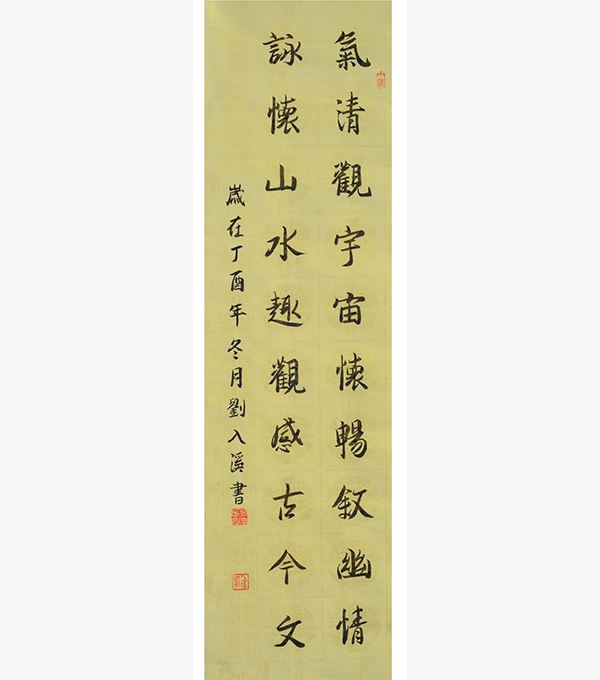 氣清觀宇宙懷暢叙幽情
詠懷山水趣觀感古今文
歲在丁酉年冬月劉入溪書